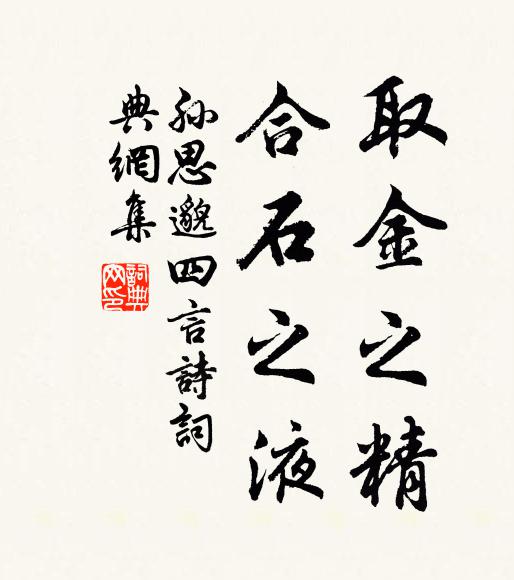 取金之精
合石之液
孙思邈四言詩詞
典網集
詞典网印